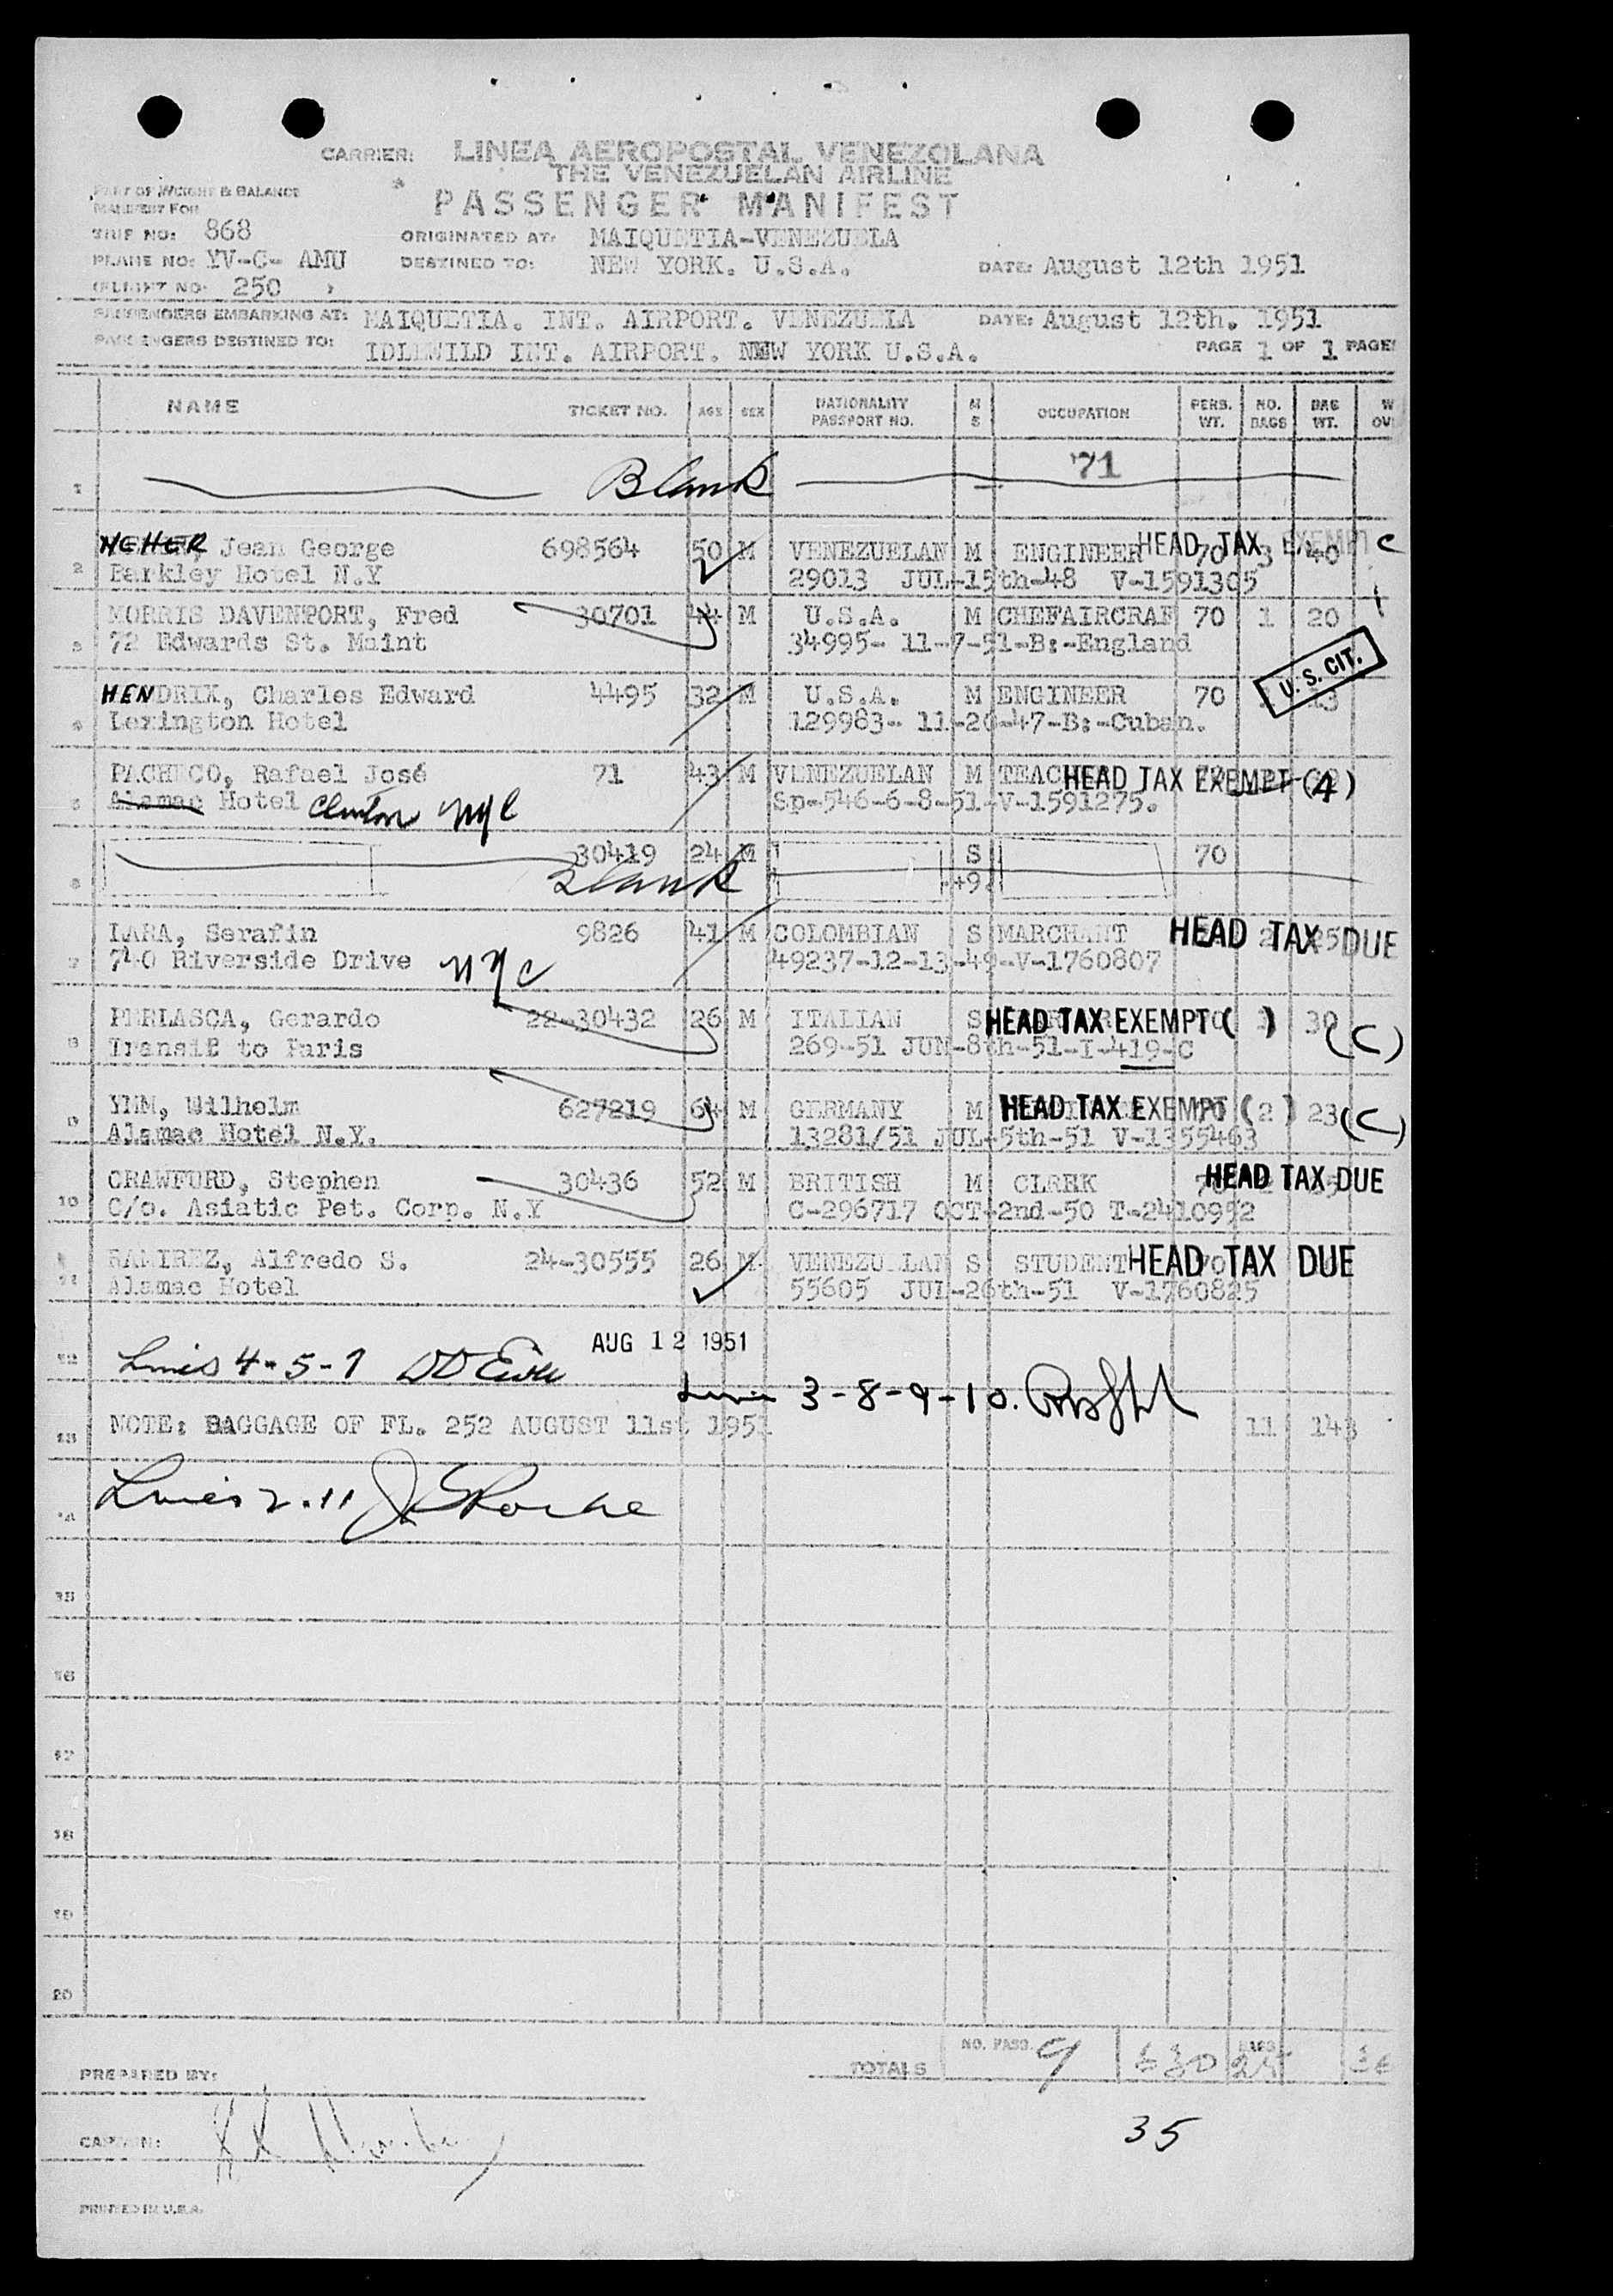 CARRIER: LINEA AEROPOSTAL VENEZOLANA
THE VENEZUELAN AIRLINE
PART OF WEIGHT & BALANCE
MANIFEST FOR
PASSENGER MANIFEST
TRIP NO: 868
ORIGINATED AT: MAIQUETIA-VENEZUELA
PLANE NO: YV-C- AMU
DESTINED TO: NEW YORK. U.S.A.
DATE: August 12th 1951
(FLIGHT NO. 250 )
PASSENGERS EMBARKING AT: MAIQUETIA. INT. AIRPORT. VENEZUELA DATE: August 12th. 1951
PASSENGERS DESTINED TO: IDLEWILD INT. AIRPORT. NEW YORK U.S.A. PAGE 1 OF 1 PAGES
NAME TICKET NO. AGE SEX NATIONALITY PASSPORT NO. M S OCCUPATION PERS. WT. NO. BAGS BAG WT. W OV
1 Blank 71
2 HEHER, Jean George 698564 50 M VENEZUELAN M ENGINEER 70 3 40 HEAD TAX EXEMPT C
Barkley Hotel N.Y 29013 JUL-15th-48 V-1591305
3 MORRIS DAVENPORT, Fred 30701 44 M U.S.A. M CHEFAIRCRAF 70 1 20
72 Edwards St. Maint 34995- 11-7-51-B:-England
4 HENDRIX, Charles Edward 4495 32 M U.S.A. M ENGINEER 70 U. S. CIT.
Lexington Hotel 129983- 11-26-47-B:-Cuban.
5 PACHECO, Rafael José 71 43 M VENEZUELAN M TEAC HEAD TAX EXEMPT (4)
Alamac Hotel Clinton NYC Sp-546-6-8-51-V-1591275.
6 30419 24 M S 70
Blank +9
7 LARA, Serafin 9826 41 M COLOMBIAN S MARCHANT 2 25 HEAD TAX DUE
740 Riverside Drive NYC 49237-12-13-49-V-1760807
8 PERLASCA, Gerardo 22-30432 26 M ITALIAN S HEAD TAX EXEMPT ( ) 30 (C)
Transit to Paris 269-51 JUN-8th-51-I-419-C
9 YMM, Wilhelm 627219 64 M GERMANY M HEAD TAX EXEMPT ( 2 ) 23 (C)
Alamac Hotel N.Y. 13281/51 JUL-5th-51 V-1355463
10 CRAWFORD, Stephen 30436 52 M BRITISH M CLERK 70 HEAD TAX DUE
C/o. Asiatic Pet. Corp. N.Y C-296717 OCT-2nd-50 T-2410992
11 RAMIREZ, Alfredo S. 24-30555 26 M VENEZUELAN S STUDENT 70 HEAD TAX DUE
Alamac Hotel 55605 JUL-26th-51 V-1760825
AUG 12 1951
12 Lines 4-5-7
Lines 3-8-9-10.
13 NOTE: BAGGAGE OF FL. 252 AUGUST 11st 1951 11 143
14 Lines 2-11
15
16
17
18
19
20
TOTALS NO. PASS. 9 630 BAGS 25
PREPARED BY:
35
CAPTAIN:
PRINTED IN U.S.A.